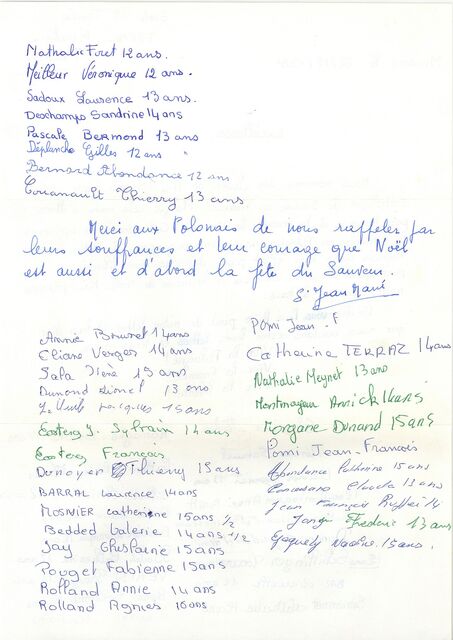 Nathalie Furet 12 ans.
Meilleur Véronique 12 ans.
Sadoux Laurence 13 ans.
Deschamps Sandrine 14 ans
Pascale BERMOND 13 ans
Déplanche Gilles 12 ans
Bernard Abondance 12 ans
Thierry 13 ans
Merci aux Polonais de nous rappeler par
leurs souffrances et leur courage que Noël
est aussi et d'abord la fête du Sauveur.
Sr Jean Marie
Annie Brunet 14 ans
Eliane Verger 14 ans
Sala 15 ans
Dumond Lionel 13 ans
Jacques 15 ans
Sylvain 14 ans
François
Denoyer Thierry 15 ans
BARRAL Laurence 14 ans
MOSNIER catherine 15 ans 1/2
Bedded Valerie 14 ans 1/2
Jay Ghislaine 15 ans
Pouget Fabienne 15 ans
Rolland Annie 14 ans
Rolland Agnies 16 ans
Pomi Jean-F
Catherine TERRAZ 14 ans
Nathalie Meynet 13 ans
Montmayeur Annick 14 ans
Morgane Dunand 15 ans
Pomi Jean-François
Abondance Catherine 15 ans
Claude 13 ans
Jean François
Frederic 13 ans
Nadine 15 ans.